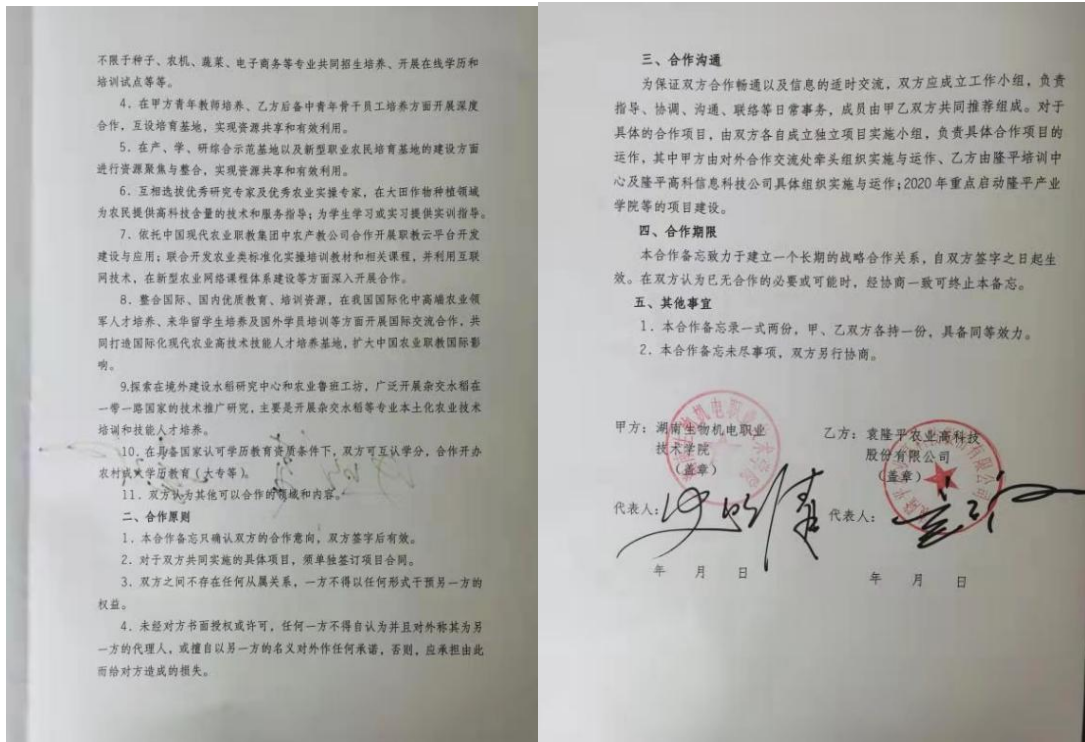 不限于种子、农机、蔬菜、电子商务等专业共同招生培养、开展在线学历和
培训试点等等。
4．在甲方青年教师培养、乙方后备中青年骨干员工培养方面开展深度
合作，互设培育基地，实现资源共享和有效利用。
5．在产、学、研综合示范基地以及新型职业农民培育基地的建设方面
进行资源聚焦与整合，实现资源共享和有效利用。
6．互相选拔优秀研究专家及优秀农业实操专家，在大田作物种植领域
为农民提供高科技含量的技术和服务指导；为学生学习或实习提供实训指导。
7．依托中国现代农业职教集团中农产教公司合作开展职教云平台开发
建设与应用；联合开发农业类标准化实操培训教材和相关课程，并利用互联
网技术，在新型农业网络课程体系建设等方面深入开展合作。
8．整合国际、国内优质教育、培训资源，在我国国际化中高端农业领
军人才培养、来华留学生培养及国外学员培训等方面开展国际交流合作，共
同打造国际化现代农业高技术技能人才培养基地，扩大中国农业职教国际影
响。
9.探索在境外建设水稻研究中心和农业鲁班工坊，广泛开展杂交水稻在
一带一路国家的技术推广研究，主要是开展杂交水稻等专业本土化农业技术
培训和技能人才培养。
10．在具备国家认可学历教育资质条件下，双方可互认学分，合作开办
农村成人学历教育（大专等）。
11．双方认为其他可以合作的领域和内容。
二、合作原则
1．本合作备忘只确认双方的合作意向，双方签字后有效。
2．对于双方共同实施的具体项目，须单独签订项目合同。
3．双方之间不存在任何从属关系，一方不得以任何形式干预另一方的
权益。
4．未经对方书面授权或许可，任何一方不得自认为并且对外称其为另
一方的代理人，或擅自以另一方的名义对外作任何承诺，否则，应承担由此
而给对方造成的损失。
三、合作沟通
为保证双方合作畅通以及信息的适时交流，双方应成立工作小组，负责
指导、协调、沟通、联络等日常事务，成员由甲乙双方共同推荐组成。对于
具体的合作项目，由双方各自成立独立项目实施小组，负责具体合作项目的
运作，其中甲方由对外合作交流处牵头组织实施与运作、乙方由隆平培训中
心及隆平高科信息科技公司具体组织实施与运作；2020年重点启动隆平产业
学院等的项目建设。
四、合作期限
本合作备忘致力于建立一个长期的战略合作关系，自双方签字之日起生
效。在双方认为已无合作的必要或可能时，经协商一致可终止本备忘。
五、其他事宜
1．本合作备忘录一式两份，甲、乙双方各持一份，具备同等效力。
2．本合作备忘未尽事项，双方另行协商。
甲方：湖南生物机电职业
技术学院
（盖章）
代表人：
年 月 日
乙方：袁隆平农业高科技
股份有限公司
（盖章）
代表人：
年 月 日